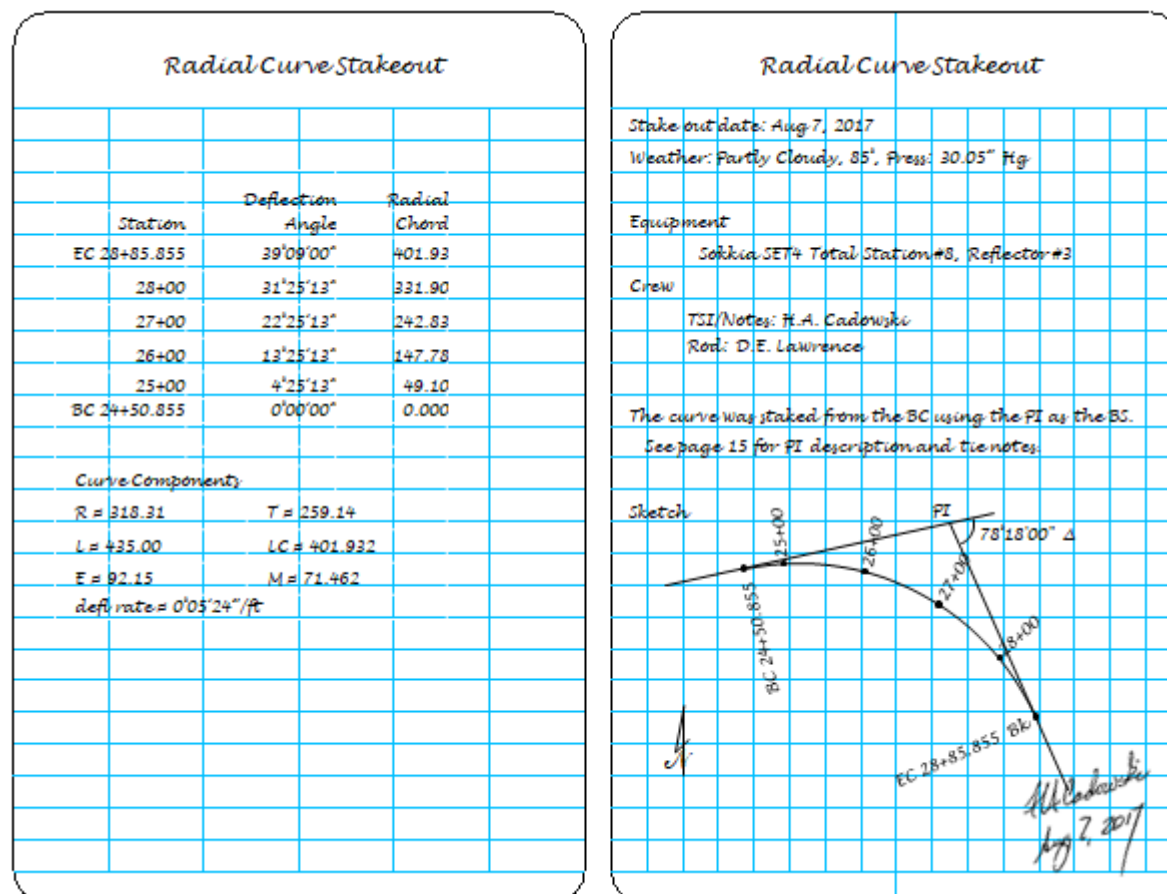 Radial Curve Stakeout
Deflection Radial
Station Angle Chord
EC 28+85.855 39°09'00" 401.93
28+00 31°25'13" 331.90
27+00 22°25'13" 242.83
26+00 13°25'13" 147.78
25+00 4°25'13" 49.10
BC 24+50.855 0°00'00" 0.000
Curve Components
R = 318.31 T = 259.14
L = 435.00 LC = 401.932
E = 92.15 M = 71.462
defl rate = 0°05'24"/ft
Radial Curve Stakeout
Stake out date: Aug 7, 2017
Weather: Partly Cloudy, 85°, Press: 30.05" Hg
Equipment
Sokkia SET4 Total Station #8, Reflector #3
Crew
TSI/Notes: H.A. Cadowski
Rod: D.E. Lawrence
The curve was staked from the BC using the PI as the BS.
See page 15 for PI description and tie notes.
Sketch
PI
78°18'00" Δ
25+00
26+00
27+00
28+00
BC 24+50.855
EC 28+85.855 Bk
N
HA Cadowski
Aug 7, 2017